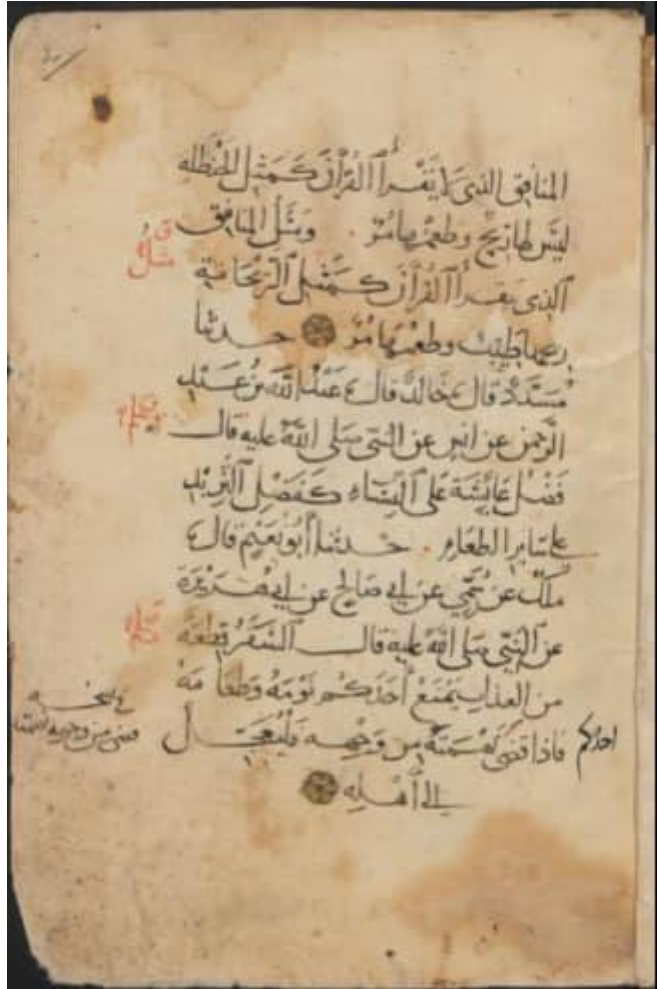 المنافق الذى لا يقرأ القرآن كمثل الحنظله
ليس لها ريح وطعمها مر . ومثل المنافق
مثل
الذى يقرأ القرآن كمثل الريحانة
ريحها طيب وطعمها مر حدثنا
مسدد قال خالد قال عبد الله بن عبد
الرحمن عن انس عن النبى صلى الله عليه قال
وسلم
فضل عايشة على النساء كفضل الثريد
على ساير الطعام . حدثنا أبو نعيم قال
ملك عن سمي عن ابى صالح عن ابى هريرة
عن النبي صلى الله عليه قال السفر قطعة
وسلم
من العذاب يمنع أحدكم نومه وطعامه
فاذا قضى نهمته من وجهه فليعجل
احدكم
الى أهله